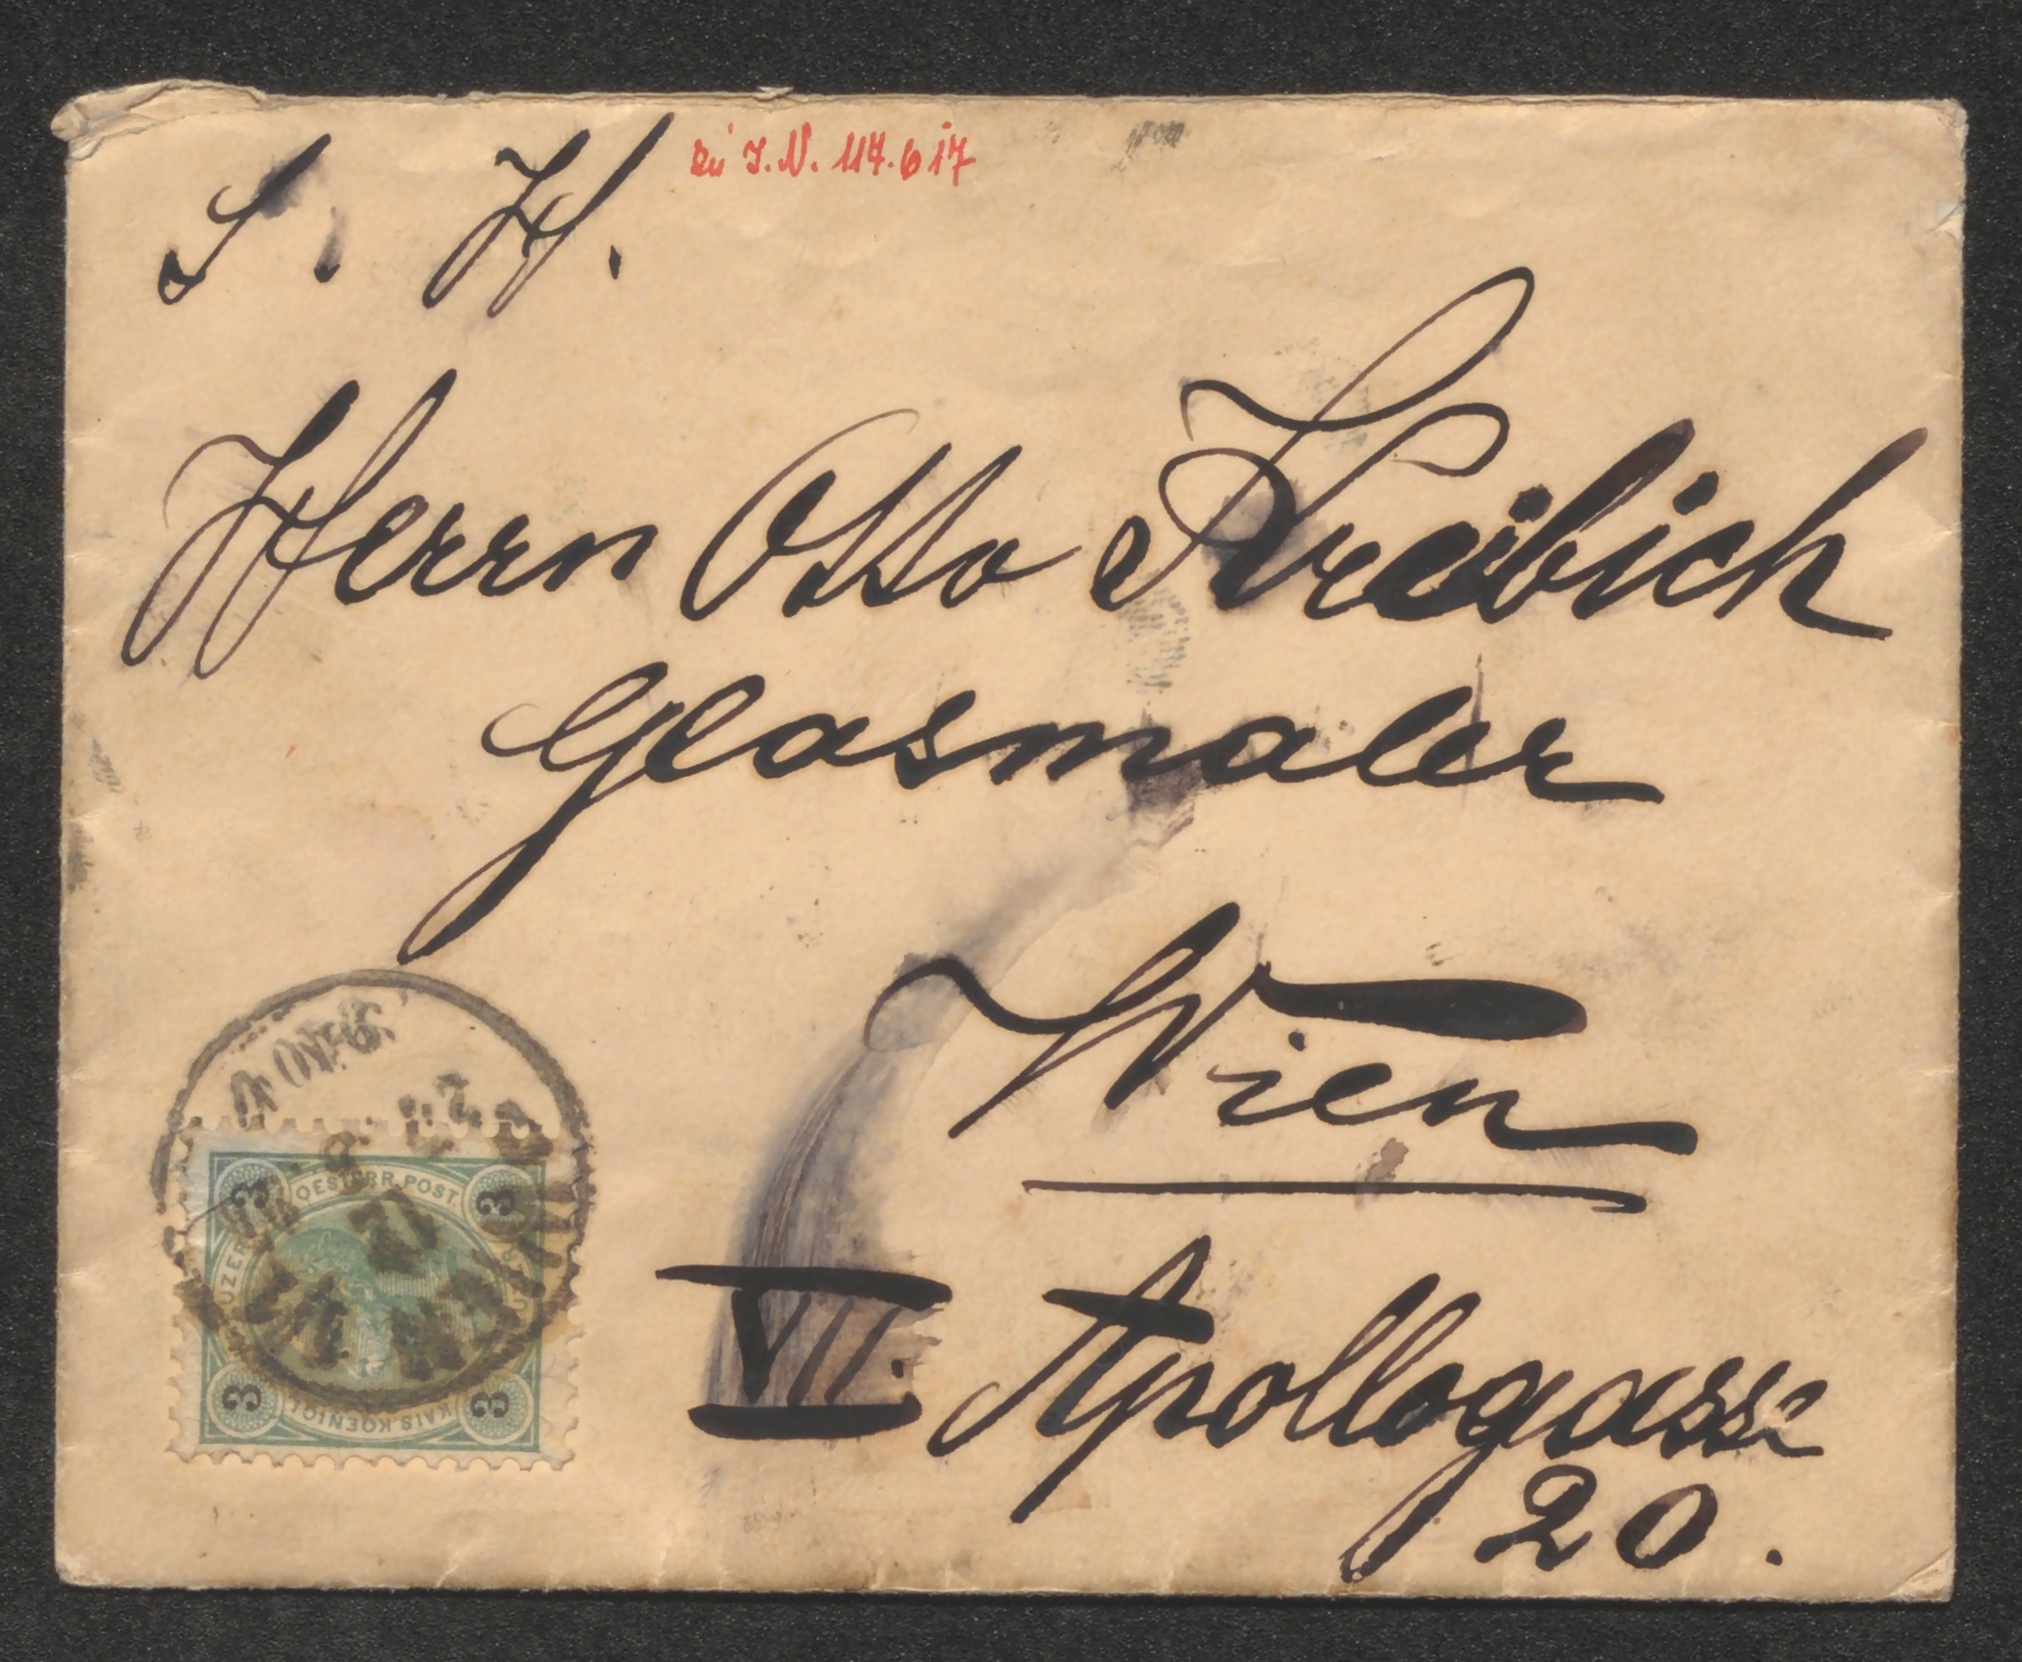 S. H.
zu I.N. 114.617
Herrn Otto Kreibich
Glasmaler
Wien
VII. Apollogasse
20.
OESTERR. POST
3 3
3 3
KAIS KOENIGL